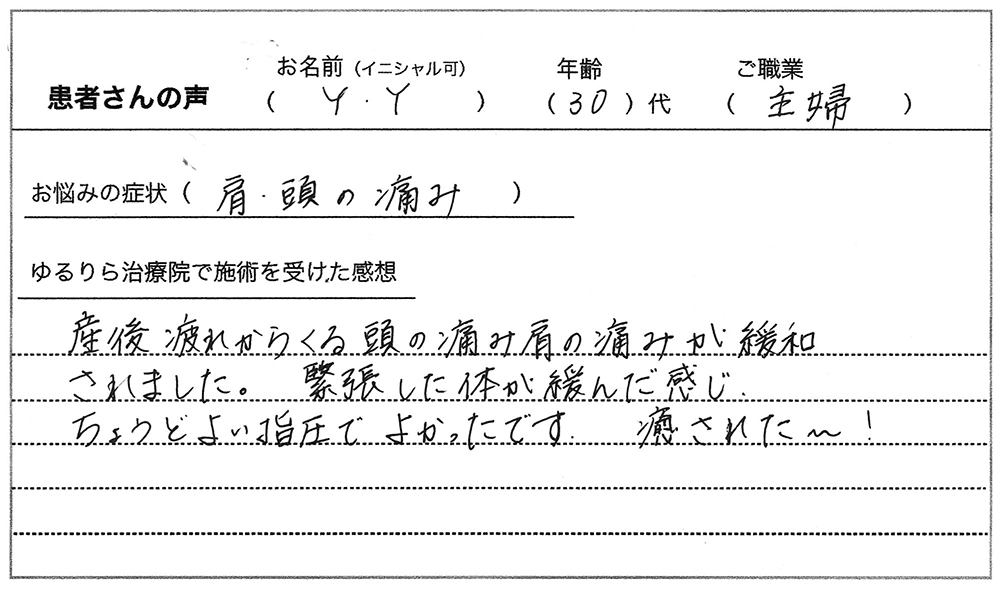 患者さんの声 お名前（イニシャル可）（ Y・Y ） 年齢（30）代 ご職業（ 主婦 ）
お悩みの症状（ 肩・頭の痛み ）
ゆるりら治療院で施術を受けた感想
産後疲れからくる頭の痛み肩の痛みが緩和
されました。 緊張した体が緩んだ感じ.
ちょうどよい指圧でよかったです. 癒された〜！